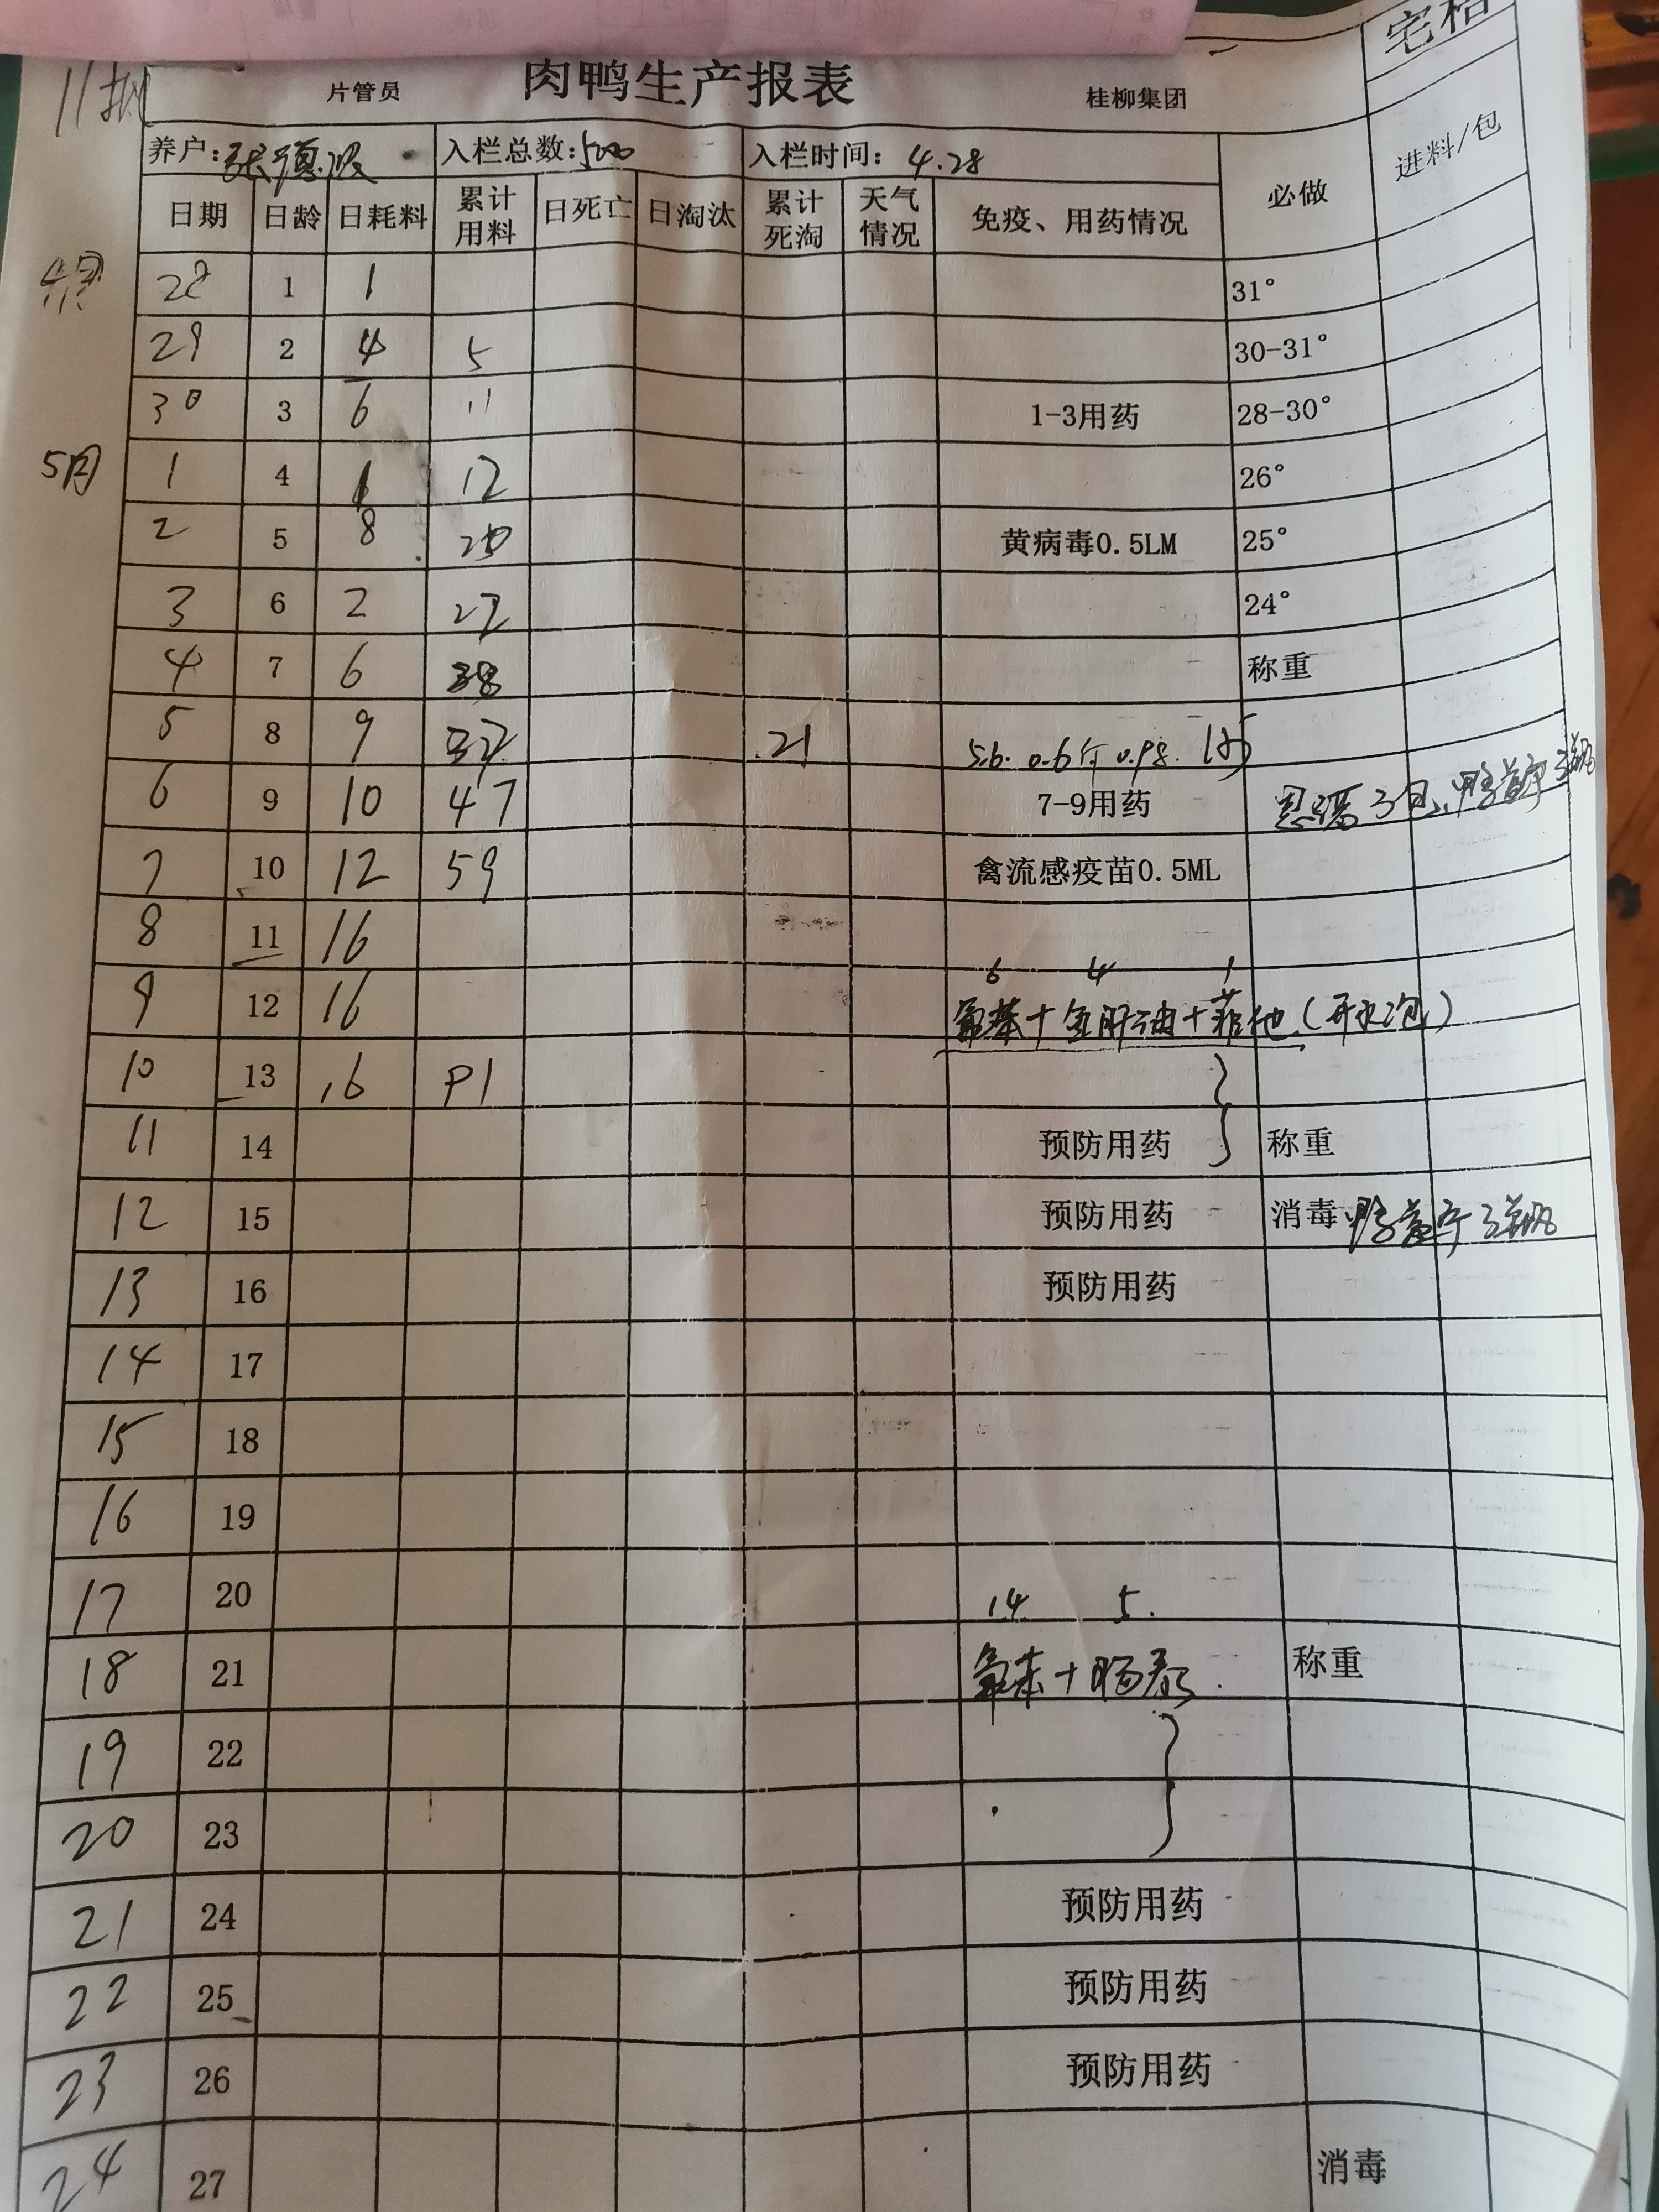 11批
片管员 肉鸭生产报表 桂柳集团
养户: 入栏总数:5000 入栏时间: 4.28 必做 进料/包
日期 日龄 日耗料 累计用料 日死亡 日淘汰 累计死淘 天气情况 免疫、用药情况
4月 28 1 1 31°
29 2 4 5 30-31°
30 3 6 11 1-3用药 28-30°
5月 1 4 1 12 26°
2 5 8 20 黄病毒0.5LM 25°
3 6 2 22 24°
4 7 6 称重
5 8 9 37 21 5.6. 0.6斤 0.98.
6 9 10 47 7-9用药 3包
7 10 12 59 禽流感疫苗0.5ML
8 11 16
6 4 1
9 12 16 氟苯+鱼肝油+ (开水泡)
10 13 16 91
11 14 预防用药 称重
12 15 预防用药 消毒
13 16 预防用药
14 17
15 18
16 19
17 20 14 5.
18 21 氟苯+肠泰. 称重
19 22
20 23
21 24 预防用药
22 25 预防用药
23 26 预防用药
24 27 消毒